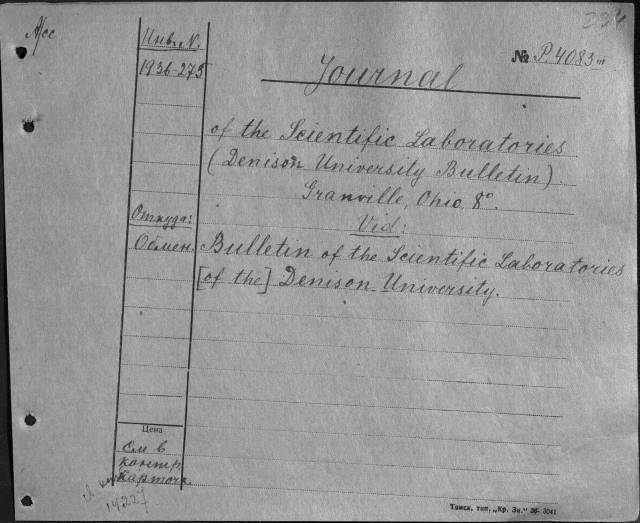 Инв. №.
№ Р.4083 III
1936-275
Journal
of the Scientific Laboratories
(Denison University Bulletin).
Granville, Ohio, 8°.
Vid:
Откуда:
Обмен.
Bulletin of the Scientific Laboratories
[of the] Denison University.
Цена
см в
контр.
карточк.
14227
Томск, тип. „Кр. Зн." 36- 3041